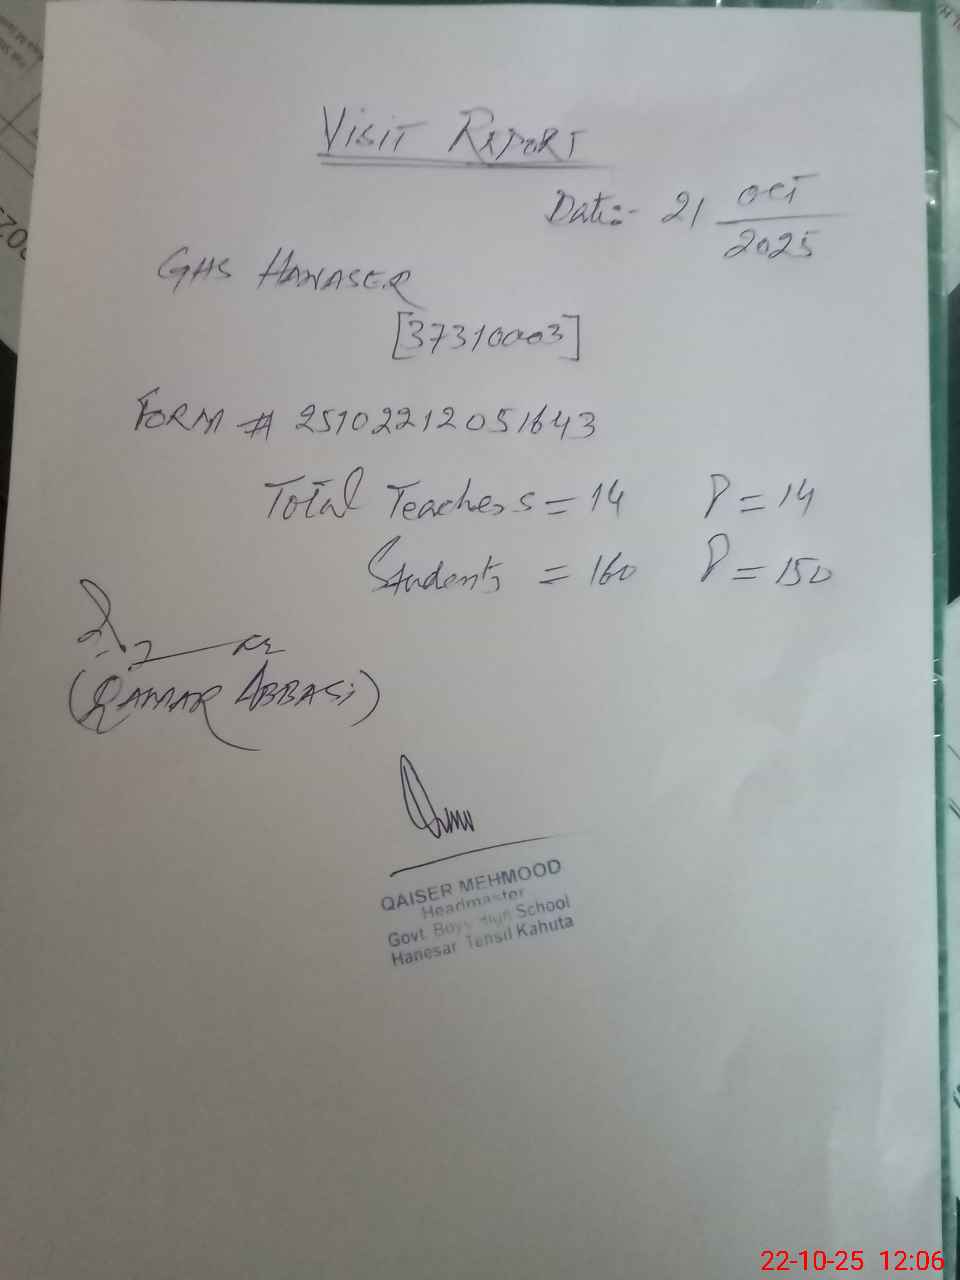 VISIT REPORT
Date:- 21 Oct
2025
GHS HANASER
[37310003]
FORM # 25102212051643
Total Teachers = 14 P = 14
Students = 160 P = 150
(QAMAR ABBASI)
QAISER MEHMOOD
Headmaster
Govt. Boys High School
Hanesar Tehsil Kahuta
22-10-25 12:06